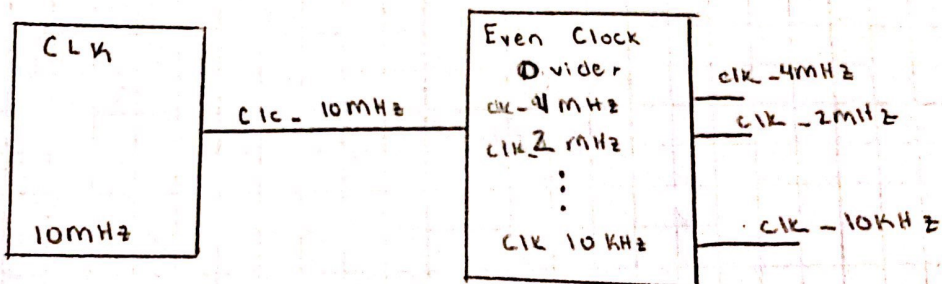 CLK
10MHz
Clc_10MHz
Even Clock
Divider
clk_4MHz
clk_2 MHz
clk 10KHz
clk_4MHz
clk_2MHz
clk_10KHz